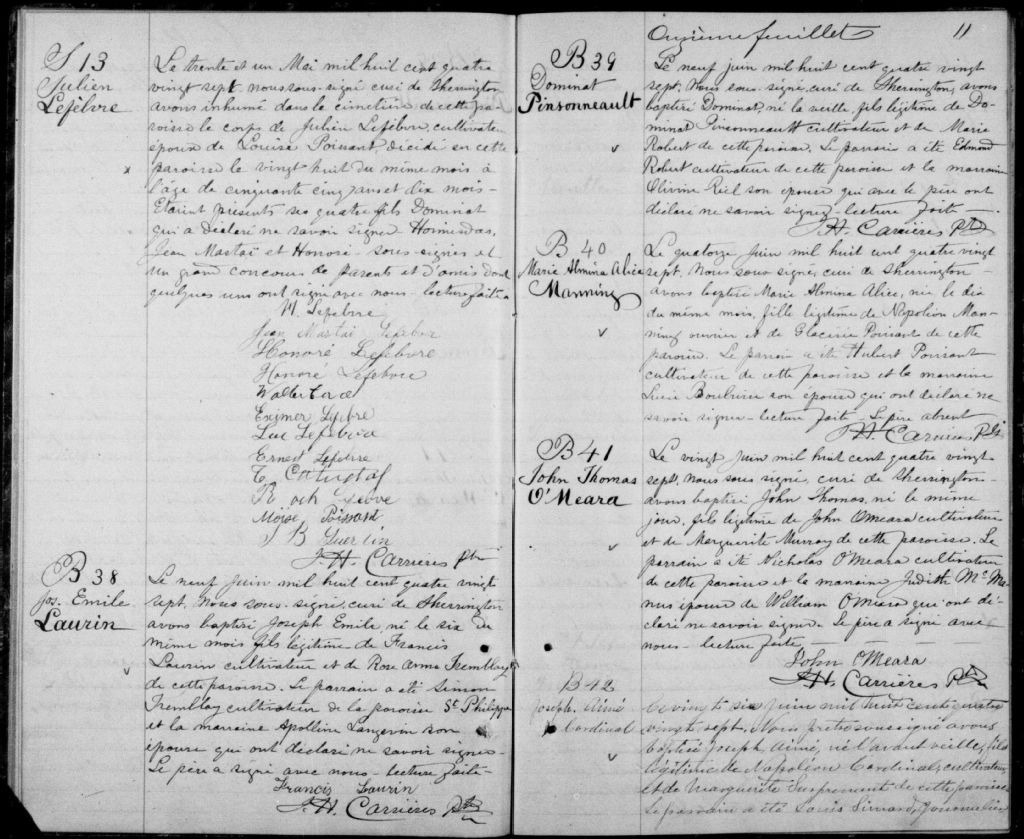 S 13
Julien
Lefebvre
Le trente et un Mai mil huit cent quatre
vingt sept nous sous-signé curé de Sherrington
avons inhumé dans le cimetière de cette pa-
roisse le corps de Julien Lefebvre, cultivateur
époux de Louise Poissant, décédé en cette
paroisse le vingt huit du même mois à
l'âge de cinquante cinq ans et dix mois-
Etaient présents ses quatre fils Dominat
qui a déclaré ne savoir signer Hormisdas,
Jean Mastaï et Honoré sous-signés et
un grand concours de parents et d'amis dont
quelques uns ont signé avec nous - lecture faite -
H. Lefebvre
Jean Mastai Lefebvre
Honoré Lefebvre
Honoré Lefebvre
Walter
Lefebre
Luc Lefebvre
Ernest Lefebvre
Moïse Poissant
J B Guertin
J. H. Carrières Ptre
B 38
Jos. Emile
Laurin
Le neuf Juin mil huit cent quatre vingt
sept, nous sous-signé, curé de Sherrington
avons baptisé Joseph Emile, né le six du
même mois fils légitime de Francis
Laurin cultivateur et de Rose Anna Tremblay
de cette paroisse. Le parrain a été Simon
Tremblay cultivateur de la paroisse St Philippe
et la marraine Apolline Langevin son
épouse qui ont déclaré ne savoir signer-
Le père a signé avec nous - lecture faite-
Francis Laurin
J. H. Carrières Ptre
Onzième feuillet 11
B 39
Dominat
Pinsonneault
Le neuf juin mil huit cent quatre vingt
sept, Nous sous-signé, curé de Sherrington, avons
baptisé Dominat, né la veille, fils légitime de Do-
minat Pinsonneault cultivateur et de Marie
Robert de cette paroisse. Le parrain a été Edmond
Robert cultivateur de cette paroisse et la marraine
Olivine Riel son épouse qui avec le père ont
déclaré ne savoir signer - lecture faite -
J. H. Carrières Ptre
B 40
Marie Almina Alice
Manning
Le quatorze Juin mil huit cent quatre vingt
sept, Nous sous signé, curé de Sherrington -
avons baptisé Marie Almina Alice, née le dix
du même mois, fille légitime de Napoléon Man-
ning ouvrier et de Poissant de cette
paroisse. Le parrain a été Hubert Poissant
cultivateur de cette paroisse et la marraine
Lucie son épouse qui ont déclaré ne
savoir signer - lecture faite - Le père absent
J. H. Carrières Ptre
B 41
John Thomas
O'Meara
Le vingt Juin mil huit cent quatre vingt
sept, Nous sous signé, curé de Sherrington-
avons baptisé John Thomas, né le même
jour, fils légitime de John O'Meara cultivateur
et de Marguerite Murray de cette paroisse. Le
parrain a été Nicholas O'Meara cultivateur
de cette paroisse et la marraine Judith McMa-
nus épouse de William O'Meara qui ont dé-
claré ne savoir signer. Le père a signé avec
nous - lecture faite
John O'Meara
J. H. Carrières Ptre
B 42
Joseph, Aimé
Cardinal
Ce vingt six juin mil huit cent quatre
vingt, sept, Nous prêtre soussigné avons
baptisé Joseph Aimé, né l'avant veille, fils
légitime de Napoléon Cardinal, cultivateur
et de Marguerite Surprenant de cette paroisse
Le parrain a été Louis Simard, journalier